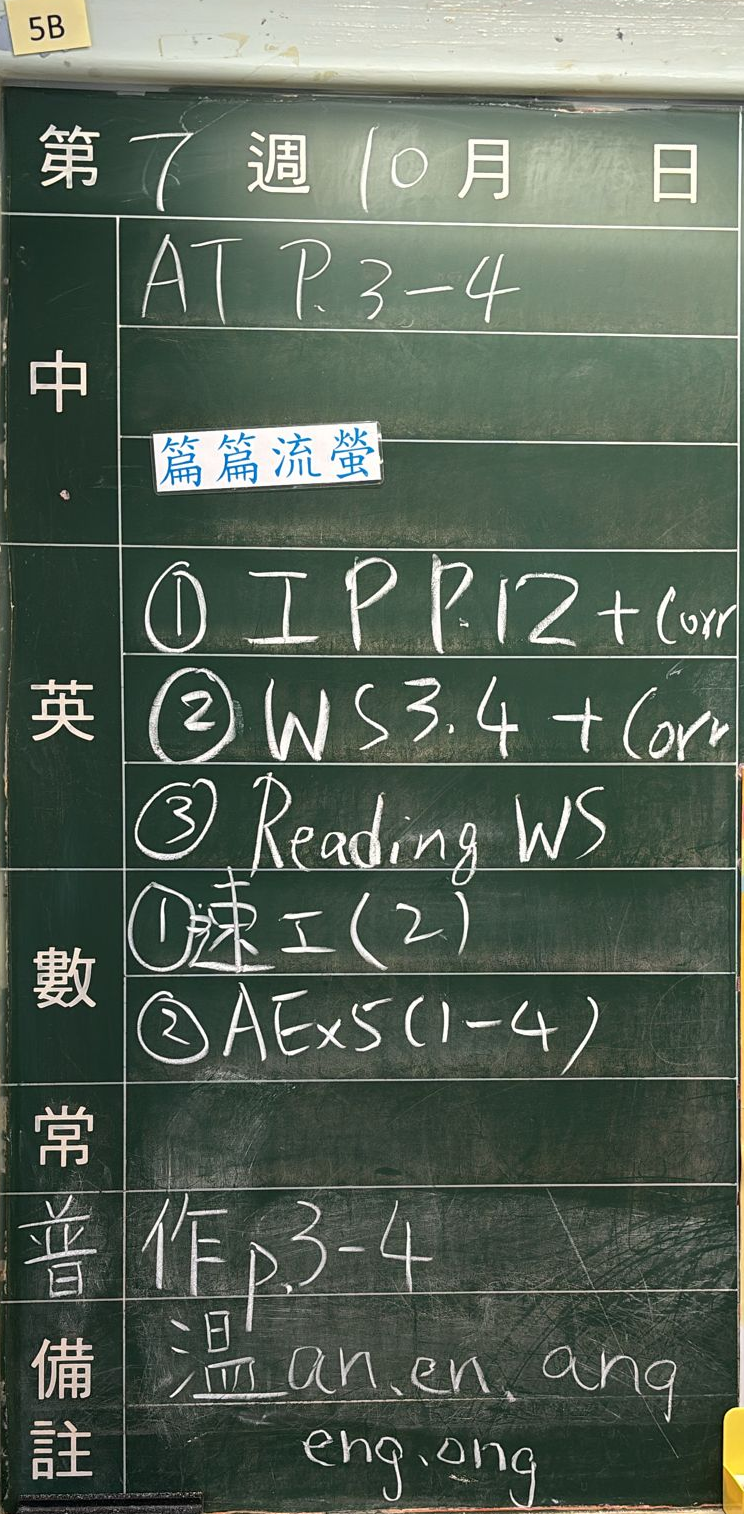 5B
第 7 週 10 月 日
中
AT P.3-4
篇篇流螢
英
① IP P.12 + Corr
② WS3.4 + Corr
③ Reading WS
數
①速工(2)
②AEx5(1-4)
常
普
作p.3-4
備註
温 an、en、ang
eng、ong